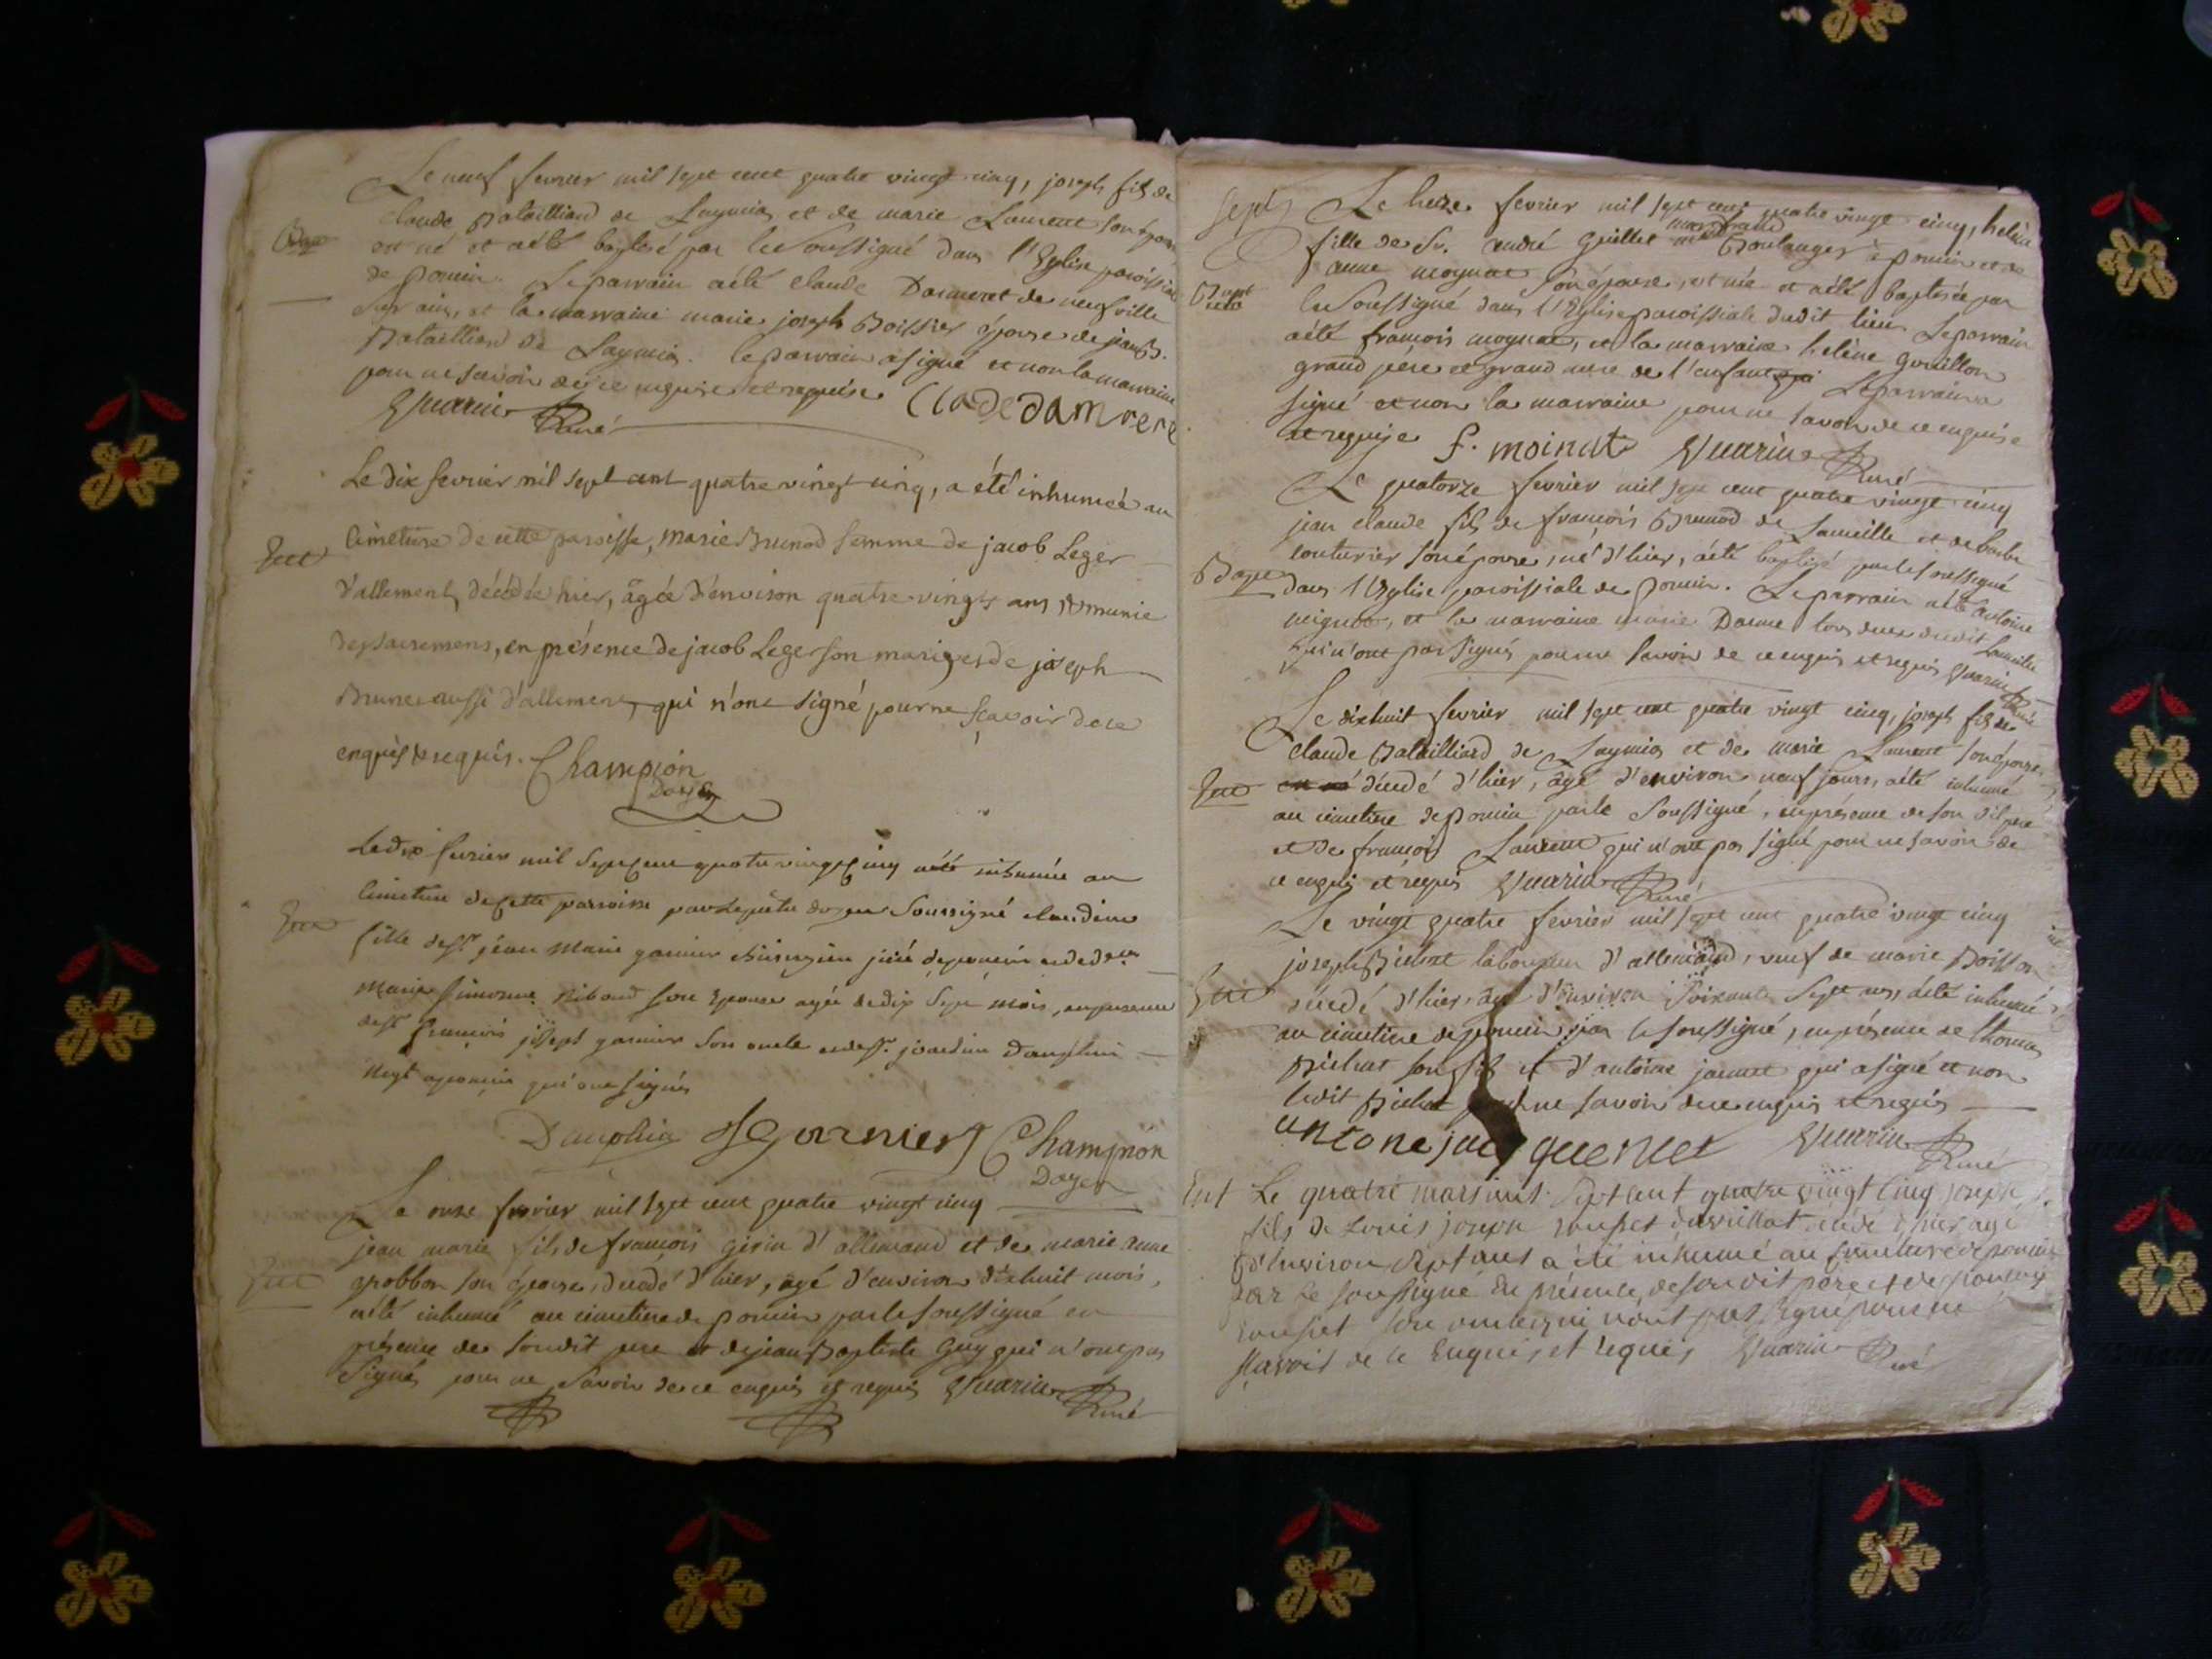 Le neuf fevrier mil sept cent quatre vingt cinq, joseph fils de
claude Bataillard de Leymia et de marie Laurent son épouse
Bapt
est né et a été baptisé par le Soussigné dans l'Eglise paroissiale
de poncin. Le parrain a été claude Dameret de neufville
sur ain, et la marraine marie joseph Boissier épouse de jean B.
Bataillard de Leymia. le parrain a signé et non la marraine
pour ne savoir de ce enquise et requise Clade damrere
Guarin Curé
Le dix fevrier mil sept cent quatre vingt cinq, a été inhumée au
Ent
cimetiere de cette paroisse, marie Brunod femme de jacob Leger
d'allement, décédée hier, âgée d'environ quatre vingts ans & munie
des sacremens, en présence de jacob Leger son mari, et de joseph
Brunet aussi d'allement, qui n'ont signé pour ne sçavoir de ce
enquis & requis. Champion
Doyen
Le dix fevrier mil sept cent quatre vingt cinq a été inhumée au
Ent
cimetiere de cette parroisse par le prêtre doyen Soussigné claudine
fille de sr. jean Marie garnier chirurgien juré de poncin et de dlle
Marie simonne Ribaud son Epouse agée de dix sept mois, en presence
de sr françois joseph garnier son oncle et de sr.
negt a poncin qui ont signés
Dauphin garnier Champion
Doyen
Le onze fevrier mil sept cent quatre vingt cinq
jean marie fils de françois girin d'allemand et de marie anne
Ent
gobbon son épouse, décédé d'hier, agé d'environ dixhuit mois,
a été inhumé au cimetiere de poncin par le soussigné en
présence de son dit pere et de jean Baptiste Guy qui n'ont pas
Signés pour ne Savoir de ce enquis et requis Guarin Curé
Sept
Le treize fevrier mil sept cent quatre vingt cinq, heléne
fille de Sr. andré Guillet marchand Boulanger à poncin et de
anne moynat son épouse, est née et a été baptisée par
Bapt
le Soussigné dans l'Eglise paroissiale dudit lieu Le parrain
a été françois moynat, et la marraine heléne gouillon
grand pére et grand mere de l'enfant Le parrain a
signé et non la marraine pour ne savoir de ce enquise
et requise f. moinat Guarin Curé
Le quatorze fevrier mil sept cent quatre vingt cinq
jean claude fils de françois Brunod de Lameille et de barbe
couturier son épouse, né d'hier, a été baptisé par le soussigné
Bapt
dans l'Eglise paroissiale de poncin. Le parrain a été antoine
mignot, et la marraine marie Dame tous deux dudit
qui n'ont pas signés pour ne savoir de ce enquis et requis Guarin Curé
Le dixhuit fevrier mil sept cent quatre vingt cinq, joseph fils de
claude Bataillard de Leymia et de marie Laurent son épouse,
Ent
décédé d'hier, agé d'environ neuf jours, a été inhumé
au cimetiere de poncin par le Soussigné, en présence de son dit pere
et de françois Laurent qui n'ont pas signé pour ne savoir de
ce enquis et requis Guarin Curé
Le vingt quatre fevrier mil sept cent quatre vingt cinq
joseph Bichat laboureur d'allemand, veuf de marie Boisson
Ent
décédé d'hier, agé d'environ soixante Sept ans, a été inhumé
au cimetiere de poncin par le soussigné, en présence de thomas
Bichat son fils et d'antoine jacquet qui a signé et non
ledit Bichat pour ne savoir de ce enquis et requis
Guarin Curé
Ent Le quatre mars mil Sept cent quatre vingt cinq joseph
fils de Louis joseph décédé d'hier agé
d'environ Sept ans a été inhumé au cimetiere de poncin
par Le soussigné En présence de son dit pere et de
son oncle qui n'ont pas signé pour ne
sçavoir de ce Enquis et requis Guarin Curé